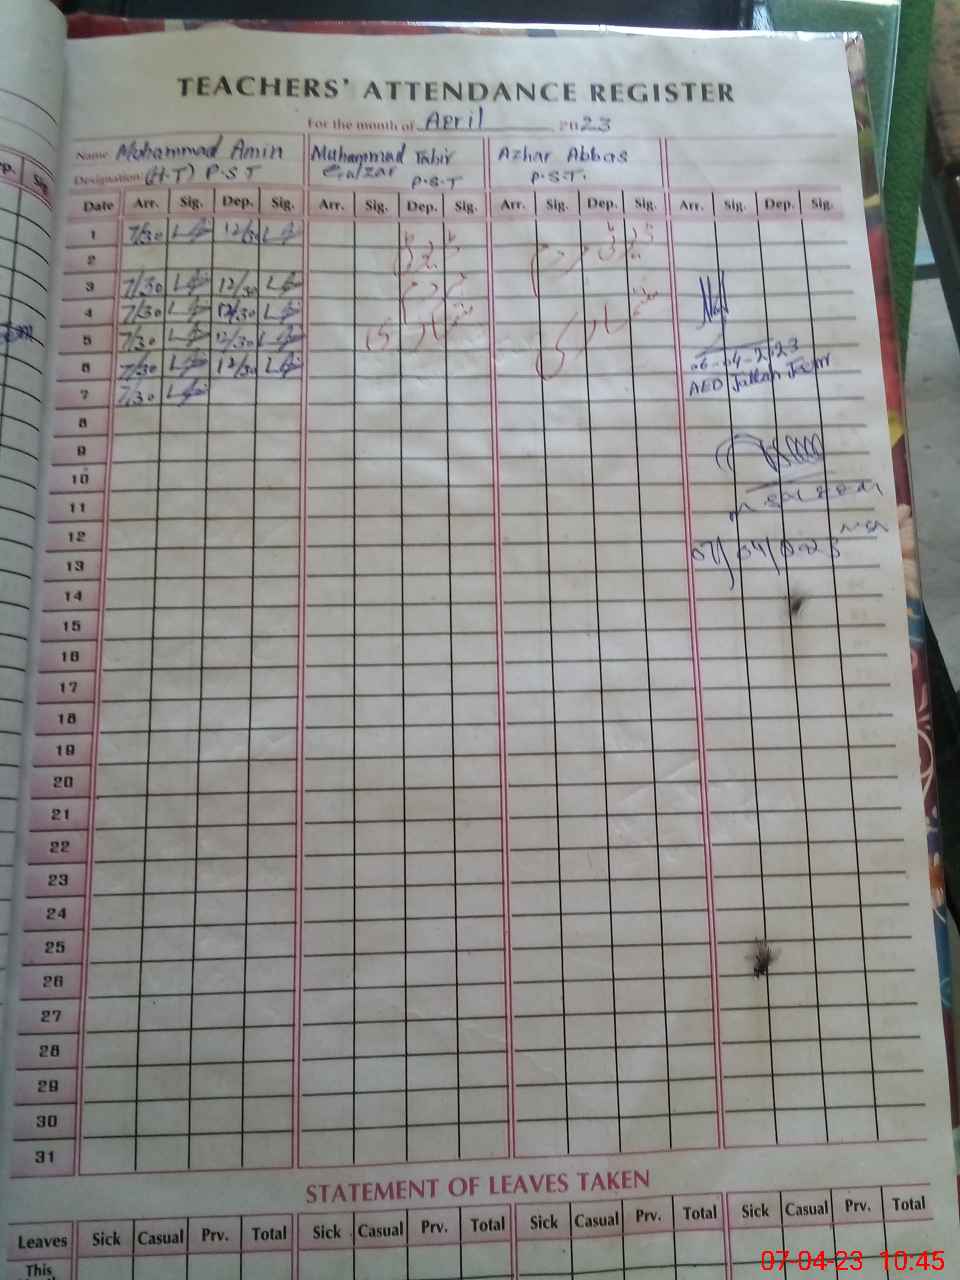 TEACHERS' ATTENDANCE REGISTER
For the month of April 2023
Name Muhammad Amin Muhammad Tahir Azhar Abbas
Designation (H.T) P.S.T Gulzar P.S.T P.S.T.
Date Arr. Sig. Dep. Sig. Arr. Sig. Dep. Sig. Arr. Sig. Dep. Sig. Arr. Sig. Dep. Sig.
1 7/30 12/30
2
3 7/30 12/30
4 7/30 12/30
5 7/30 12/30
6 7/30 12/30 06-04-2023
7 7/30 AED
8
9
10
11
12
13 07/04/2023
14
15
16
17
18
19
20
21
22
23
24
25
26
27
28
29
30
31
STATEMENT OF LEAVES TAKEN
Leaves Sick Casual Prv. Total Sick Casual Prv. Total Sick Casual Prv. Total Sick Casual Prv. Total
This
07-04-23 10:45